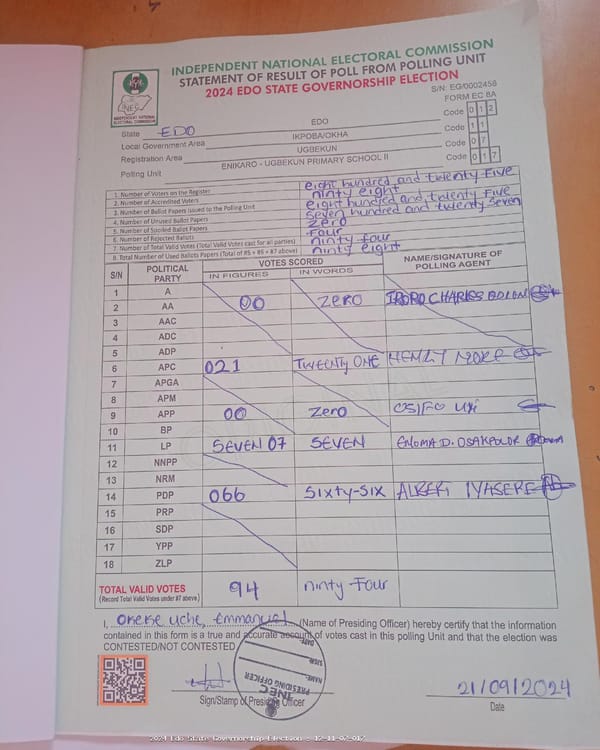 INDEPENDENT NATIONAL ELECTORAL COMMISSION
STATEMENT OF RESULT OF POLL FROM POLLING UNIT
2024 EDO STATE GOVERNORSHIP ELECTION
S/N: EG/0002458
FORM EC 8A
INEC
INDEPENDENT NATIONAL ELECTORAL COMMISSION
State EDO EDO Code 0 1 2
Local Government Area IKPOBA/OKHA Code 1 1
Registration Area UGBEKUN Code 0 7
Polling Unit ENIKARO - UGBEKUN PRIMARY SCHOOL II Code 0 1 7
1. Number of Voters on the Register eight hundred and twenty Five
2. Number of Accredited Voters ninty eight
3. Number of Ballot Papers Issued to the Polling Unit eight hundred and twenty Five
4. Number of Unused Ballot Papers Seven hundred and twenty Seven
5. Number of Spoiled Ballot Papers Zero
6. Number of Rejected Ballots Four
7. Number of Total Valid Votes (Total Valid Votes cast for all parties) ninty Four
8. Total Number of Used Ballot Papers (Total of #5 + #6 + #7 above) ninty eight
S/N POLITICAL PARTY VOTES SCORED NAME/SIGNATURE OF POLLING AGENT
IN FIGURES IN WORDS
1 A
2 AA 00 ZERO CHARLES
3 AAC
4 ADC
5 ADP
6 APC 021 TWENTY ONE
7 APGA
8 APM
9 APP 00 Zero
10 BP
11 LP SEVEN 07 SEVEN ENOMA D. OSAKPOLOR
12 NNPP
13 NRM
14 PDP 066 SIXTY-SIX ALBERT IYASERE
15 PRP
16 SDP
17 YPP
18 ZLP
TOTAL VALID VOTES 94 ninty Four
(Record Total Valid Votes under #7 above)
I, OKEKE Uche, Emmanuel (Name of Presiding Officer) hereby certify that the information
contained in this form is a true and accurate account of votes cast in this polling Unit and that the election was
CONTESTED/NOT CONTESTED
DATE:
SIGN:
NAME:
PRESIDING OFFICER
INEC
21/09/2024
Sign/Stamp of Presiding Officer Date
2024 Edo State Governorship Election - 12-11-07-017